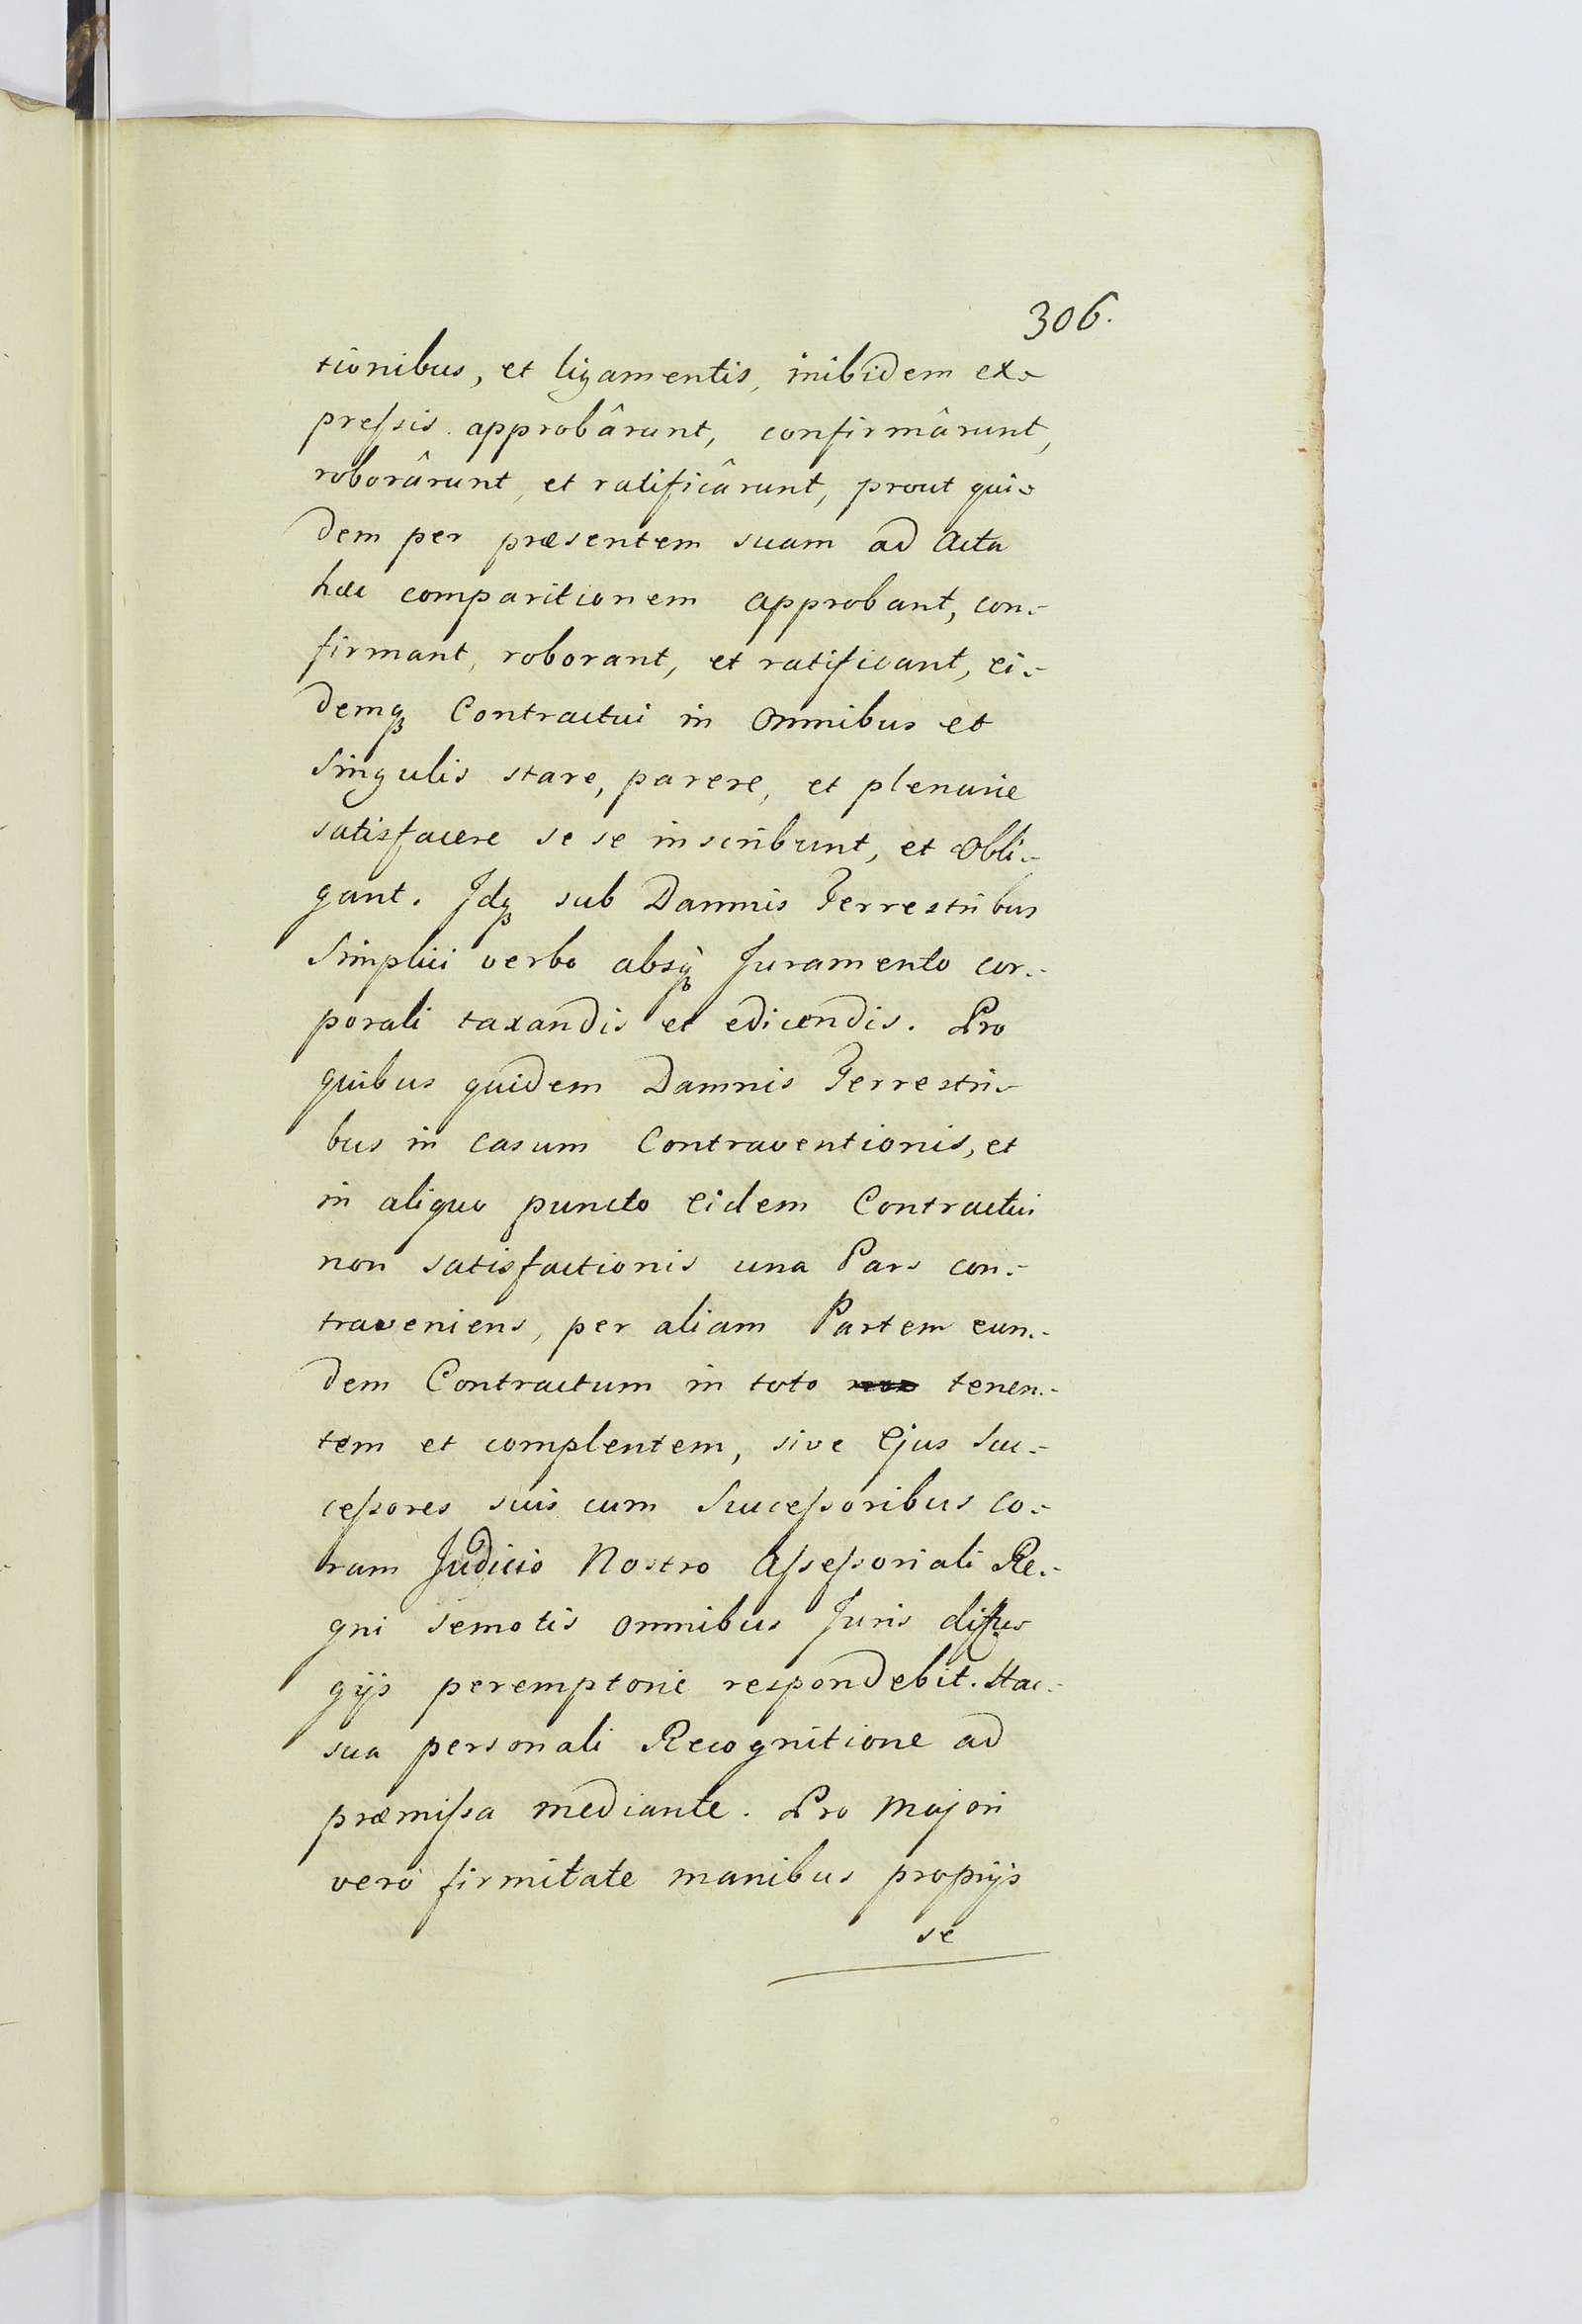 306.
tionibus, et ligamentis, inibidem ex-
preſsis approbârunt, confirmârunt,
roborârunt, et ratificârunt, prout qui-
dem per præsentem suam ad Acta
hæc comparitionem approbant, con-
firmant, roborant, et ratificant, ei-
demqꝫ Contractui in Omnibus et
Singulis stare, parere, et plenarie
satisfacere se se inscribunt, et Obli-
gant. Idqꝫ sub Damnis Terrestribus
Simplici verbo absqꝫ Juramento cor-
porali taxandis et edicendis. Pro
quibus quidem Damnis Terrestri-
bus in casum Contraventionis, et
in aliquo puncto eidem Contractui
non satisfactionis una Pars con-
traveniens, per aliam Partem eun-
dem Contractum in toto tenen-
tem et complentem, sive Ejus Suc-
ceſsores suis cum Succeſsoribus co-
ram Judicio Nostro Aſseſsoriali Re-
gni semotis omnibus Juris diffu-
gijs peremptorie respondebit. Hac
sua personali Recognitione ad
præmiſsa mediante. Pro majori
verò firmitate manibus proprijs
se